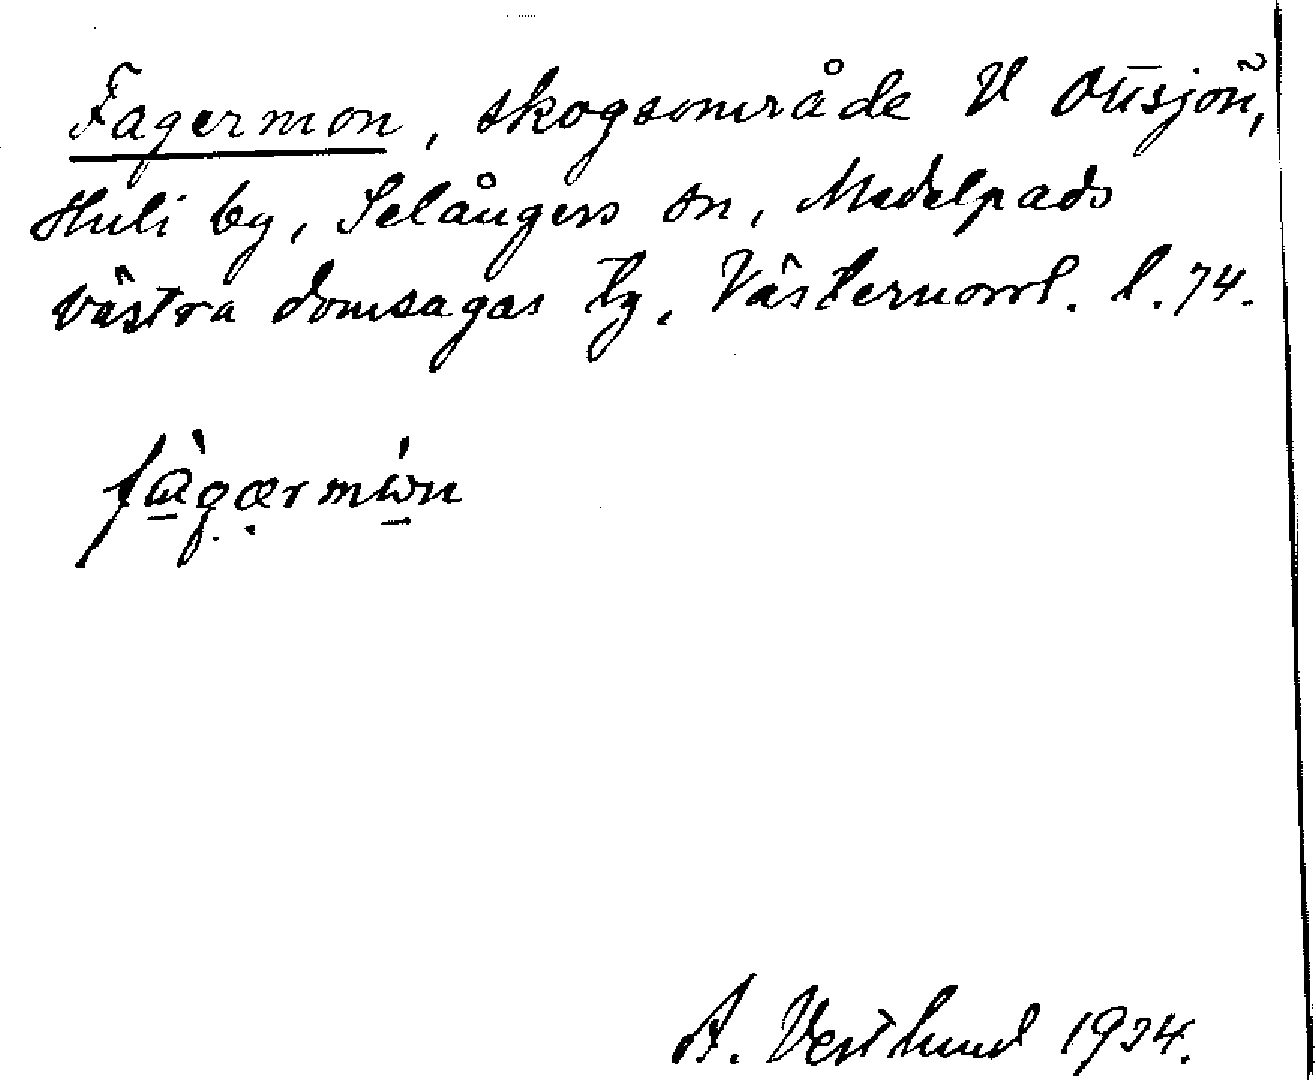 Fagermon, skogsområde V Ottsjön,
Huli by, Selångers sn, Medelpads
västra domsagas tg, Västernorrl. l. 74.
A. Vestlund 1934.